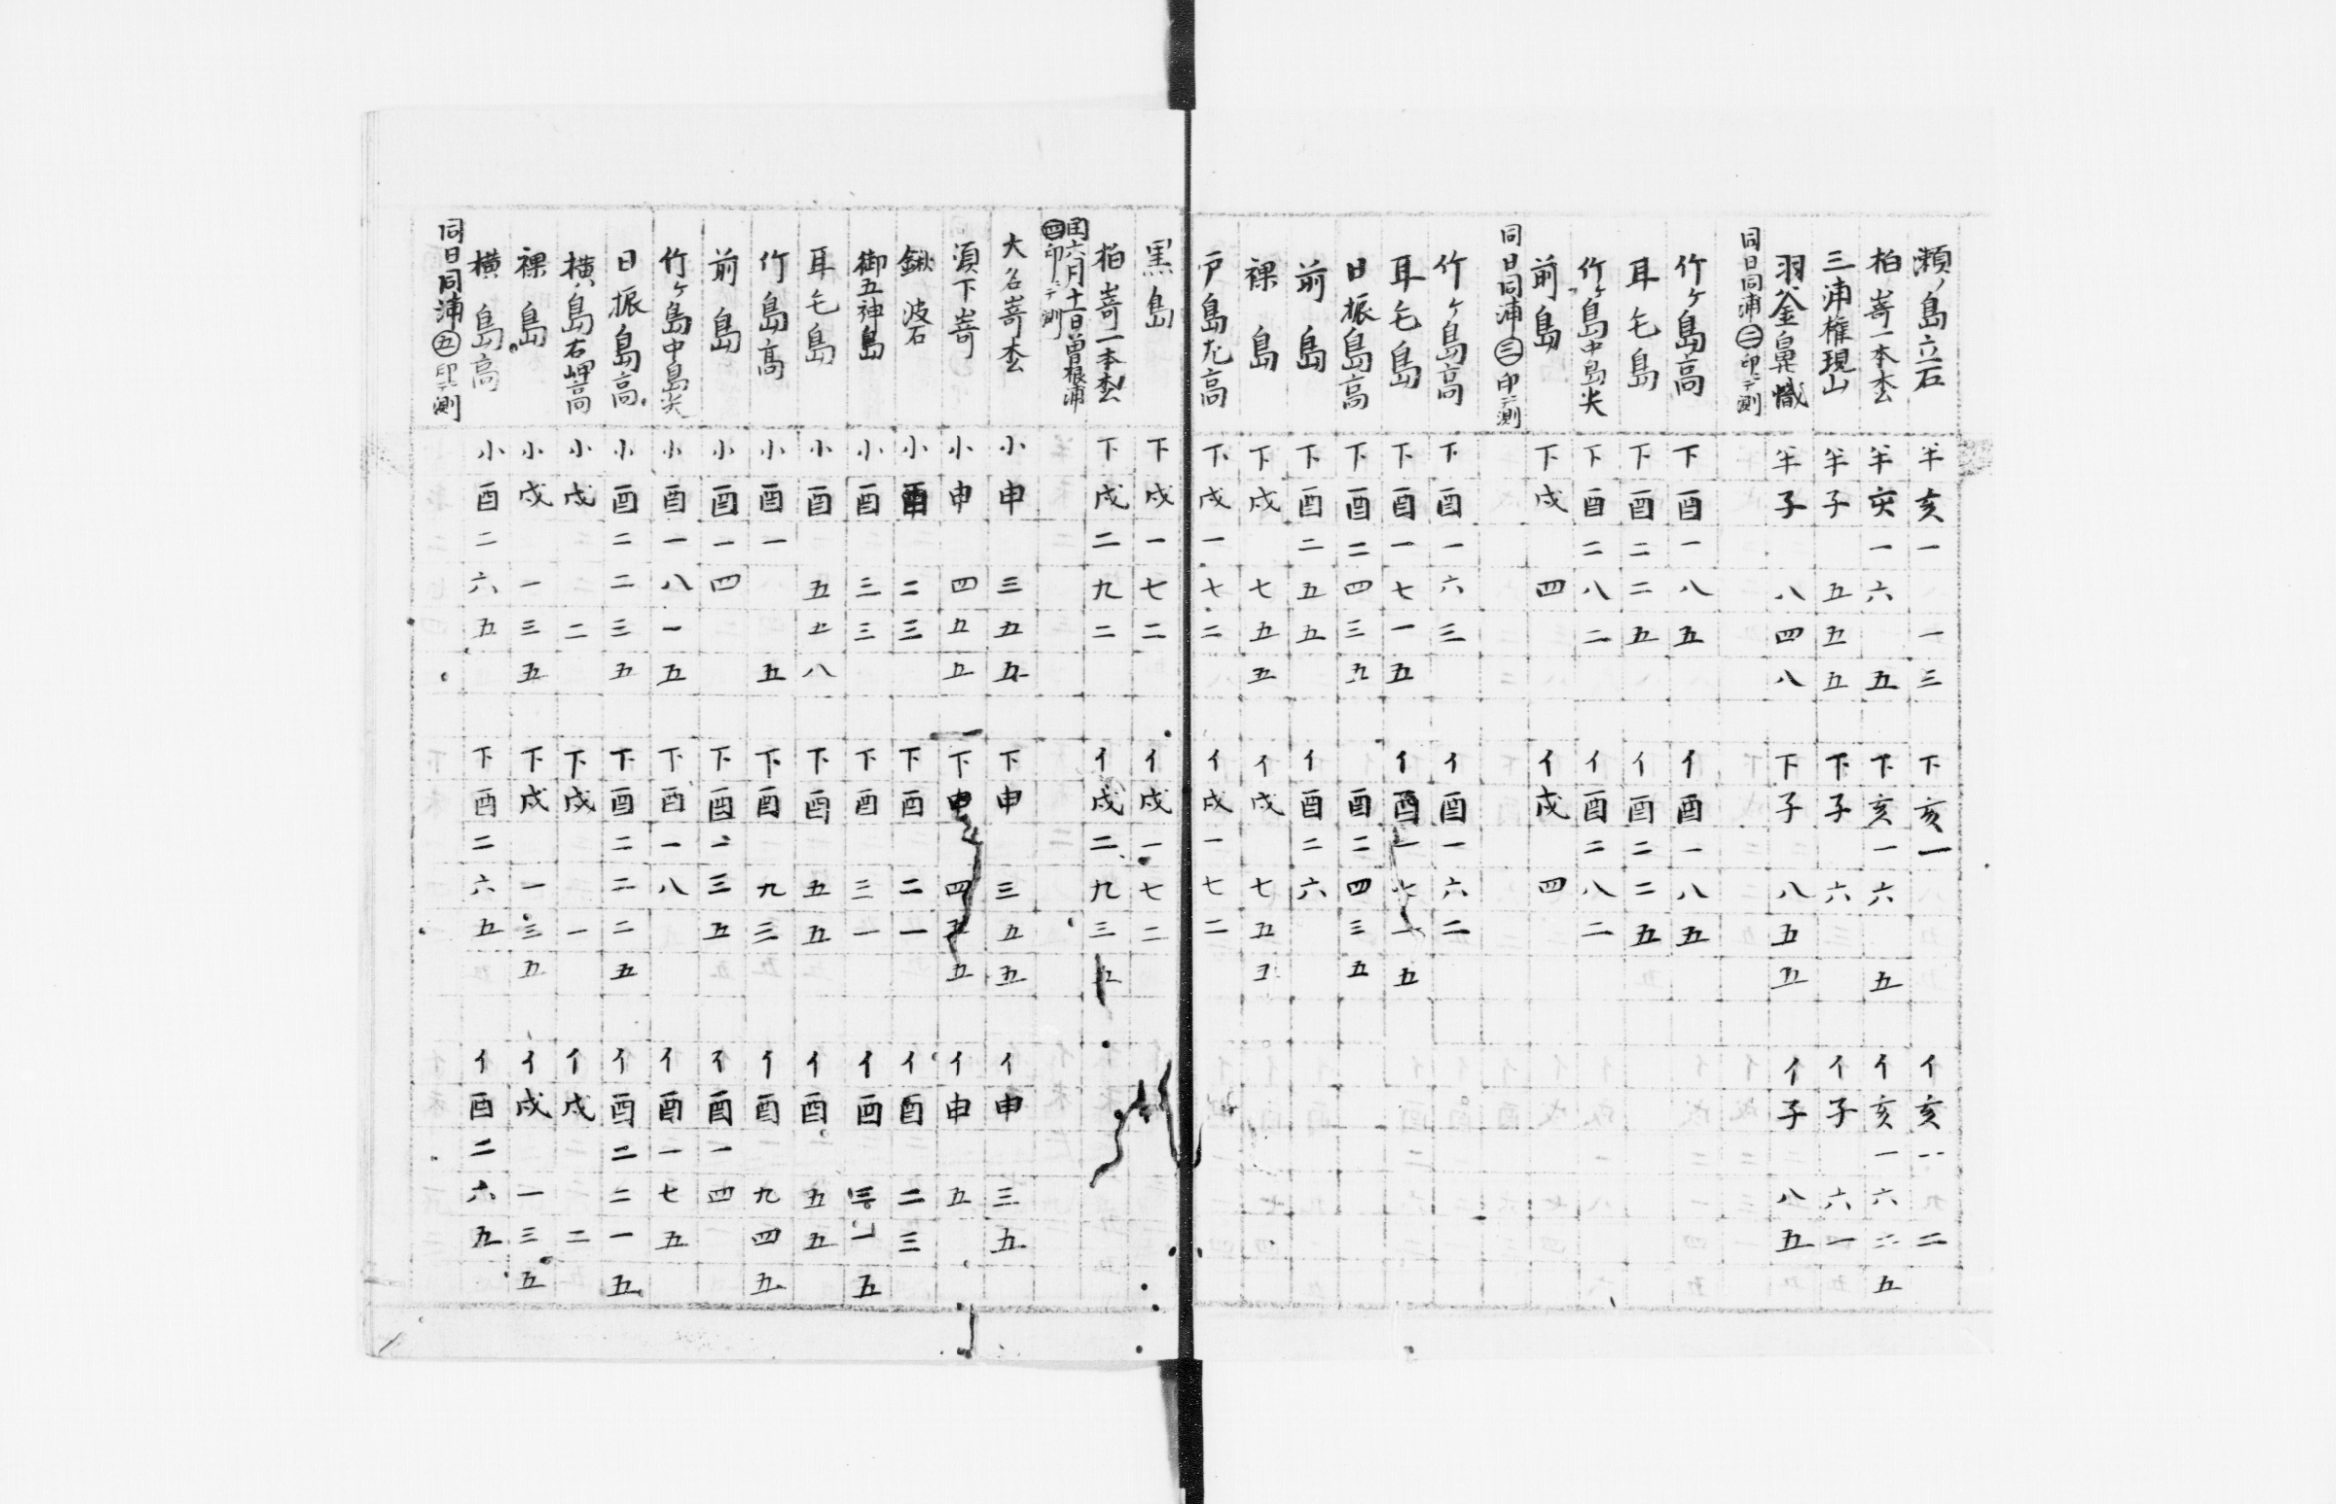 瀬ノ島立石 半亥一 一三 下亥一 イ亥一 二
柏嵜一本枩 半亥一六 五 下亥一六 五 イ亥一六二五
三浦権現山 半子 五五五 下子 六 イ子 六一
羽釜鼻幟 半子 八四八 下子 八五五 イ子 八五
同日同浦㊁印ニテ測
竹ヶ島高 下酉一八五 イ酉一八五
耳乞島 下酉二二五 イ酉二二五
竹ヶ島中島尖 下酉二八二 イ酉二八二
前島 下戌 四 イ戌 四
同日同浦㊂印ニテ測
竹ヶ島高 下酉一六三 イ酉一六二
耳乞島 下酉一七一五 イ酉一七一五
日振島高 下酉二四三九 酉二四三五
前島 下酉二五五 イ酉二六
裸島 下戌 七五五 イ戌 七五五
戸島尤高 下戌一七二 イ戌一七二
黒島 下戌一七二 イ戌一七二
柏嵜一本枩 下戌二九二 イ戌二九三五
閏六月十一日曽根浦
㊃印ニテ測
大名嵜枩 小申 三五五 下申 三五五 イ申 三五
須下嵜 小申 四五五 下申 四五五 イ申 五
鍬波石 小酉 二三 下酉 二一 イ酉 二三
御五神島 小酉 三三 下酉 三一 イ酉 三一五
耳乞島 小酉 五七八 下酉 五五 イ酉 五五
竹島高 小酉一 五 下酉 九三 イ酉 九四五
前島 小酉一四 下酉一三五 イ酉一四
竹ヶ島中島尖 小酉一八一五 下酉一八 イ酉一七五
日振島高 小酉二二三五 下酉二二二五 イ酉二二一五
横島右岬高 小戌 二 下戌 一 イ戌 二
裸島 小戌 一三五 下戌 一三五 イ戌 一三五
横島高 小酉二六五 下酉二六五 イ酉二六五
同日同浦㊄印ニテ測